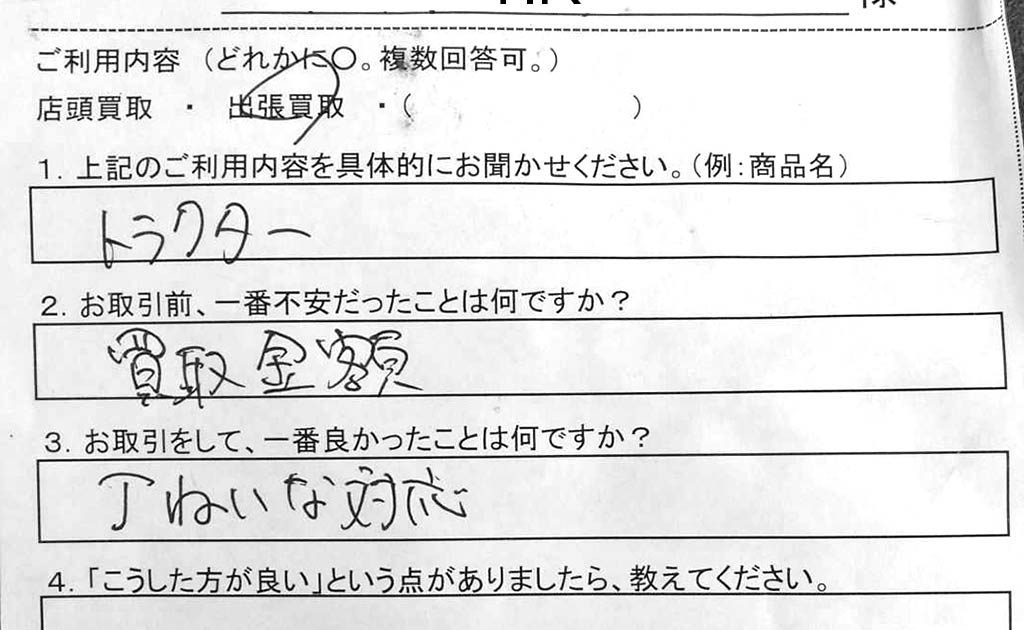 様
ご利用内容 (どれかに〇。複数回答可。)
店頭買取 ・ 出張買取 ・( )
1. 上記のご利用内容を具体的にお聞かせください。(例:商品名)
トラクター
2. お取引前、一番不安だったことは何ですか?
買取金額
3. お取引をして、一番良かったことは何ですか?
丁ねいな対応
4. 「こうした方が良い」という点がありましたら、教えてください。